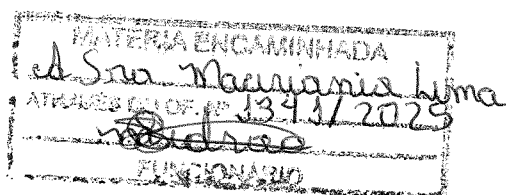 MATERIA ENCAMINHADA
A Sra Maurjania Lima
ATRAVÉS DO OF. Nº 1341/2025
FUNCIONÁRIO